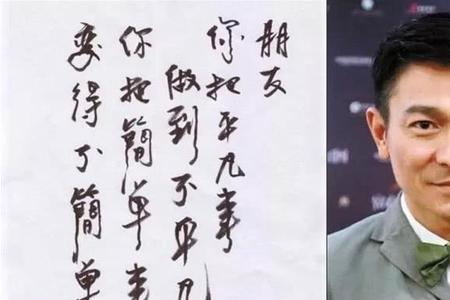 朋友
你把平凡事
做到不平凡
你把簡單事
变得不簡單